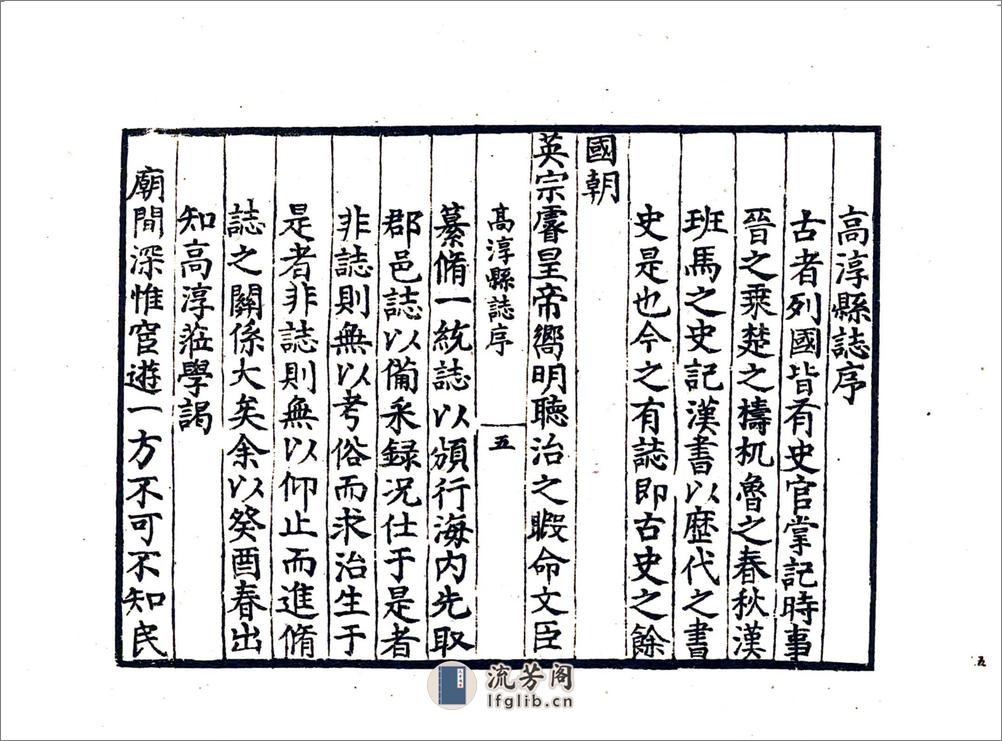 高淳縣誌序
古者列國皆有史官掌記時事
晉之乘楚之檮杌魯之春秋漢
班馬之史記漢書以歷代之書
史是也今之有誌即古史之餘
國朝
英宗睿皇帝嚮明聽治之暇命文臣
高淳縣誌序
五
纂脩一統誌以頒行海内先取
郡邑誌以備永録况仕于是者
非誌則無以考俗而求治生于
是者非誌則無以仰止而進脩
誌之關係大矣余以癸酉春出
知高淳莅學謁
廟間深惟宦遊一方不可不知民
五
流芳阁
lfglib.cn